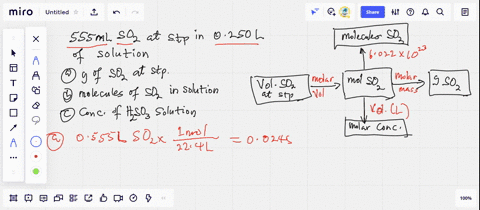 miro
Untitled
Share
555mL SO2 at stp in 0.250L
of solution
a) g of SO2 at stp.
b) molecules of SO2 in solution
c) Conc. of H2SO3 Solution
a) 0.555L SO2 x 1mol / 22.4L = 0.0248
molecules SO2
6.022 x 10^23
Vol. SO2
at stp
molar
Vol
mol SO2
molar
mass
g SO2
Vol. (L)
molar Conc.
100%